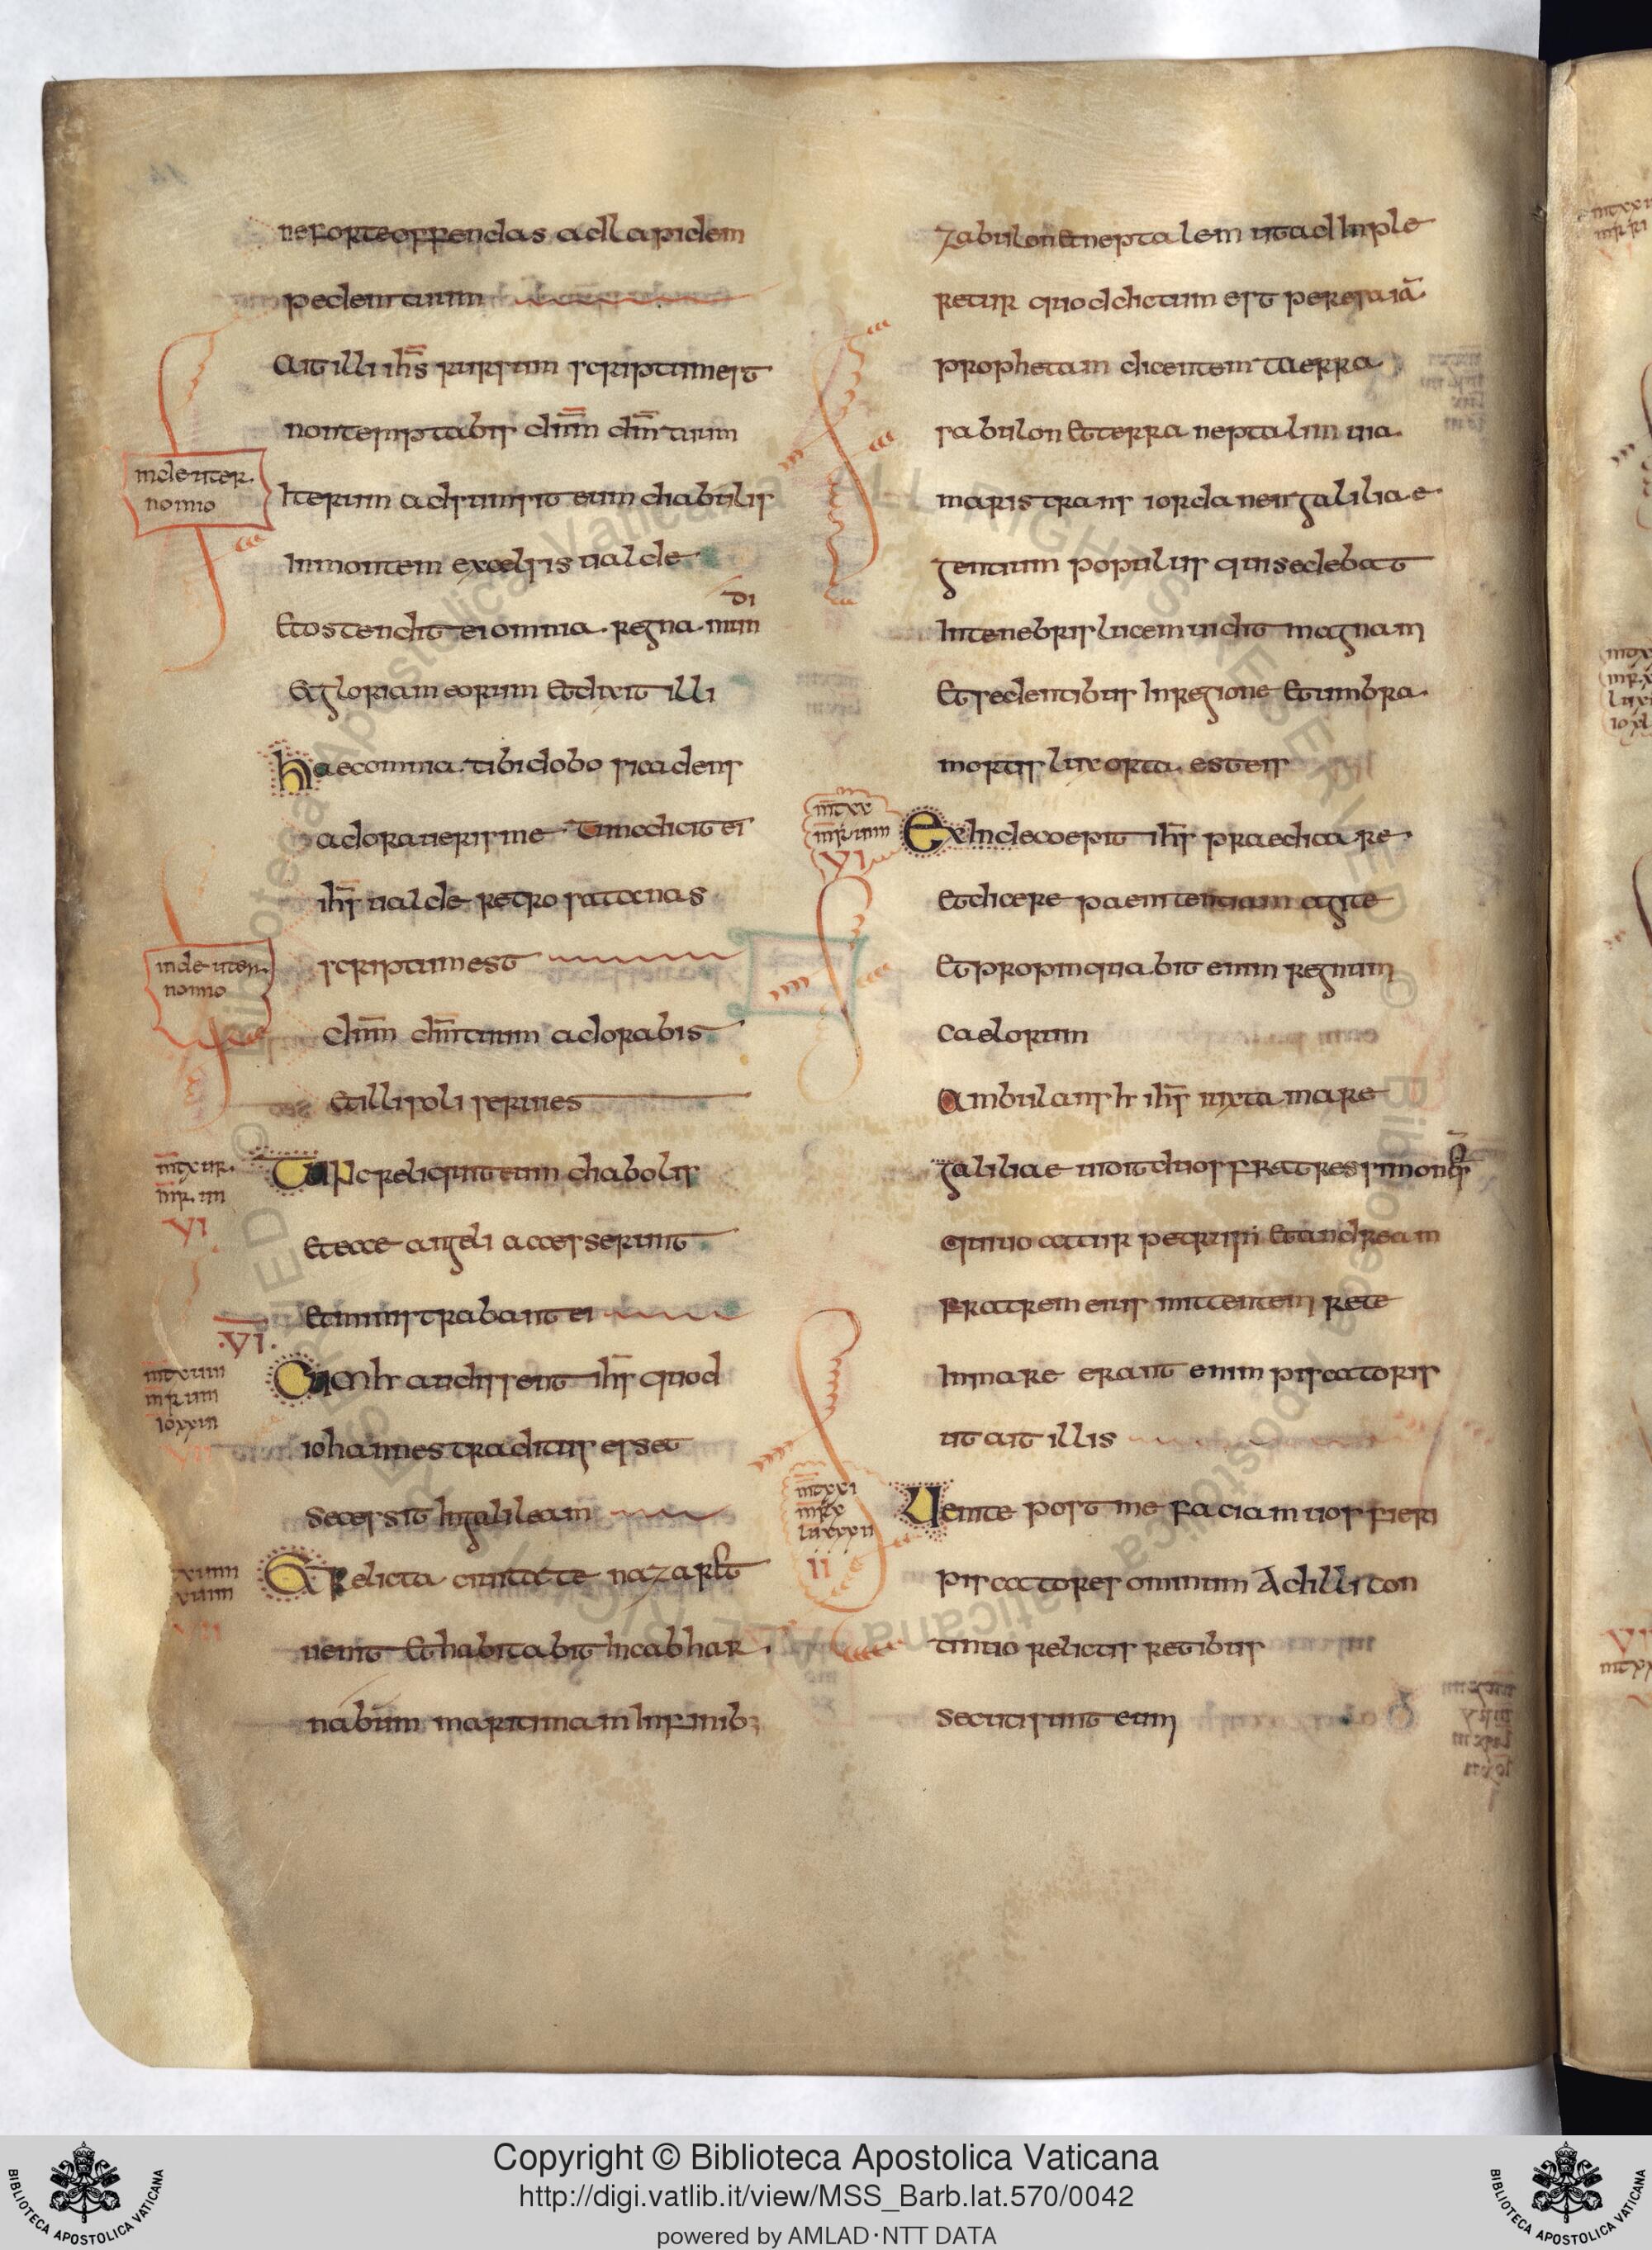 ne forte offendas ad lapidem
pedem tuum
Ait illi ihs̄ rursum scriptum est
non temptabis dnm̄ dm̄ tuum
in deuter
nomio
Iterum adsumsit eum diabulis
In montem excelsis ualde
Et ostendit ei omnia regna mun
di
Et gloriam eorum Et dixit illi
haec omnia tibi dobo si cadens
adoraueris me Tunc dicit ei
ihs̄ ualde retro satanas
scriptum est
in deuter
nomio
dnm̄ dm̄ tuum adorabis
Et illi soli seruies
mt xui
mr iii
VI
Tunc reliquit eum diabolis
Et ecce angeli accesserunt
Et ministrabant ei
VI
mt xuiii
mr uiii
io xxiii
Cum h audissent ihs̄ quod
iohannes traditus esset
Secessit In galileam
Relicta ciuitate nazareth
uenit Et habitabit In cabhar
nabum maritimam In finib;
zabulon Et neptalem ut adImple
retur quod dictum est per esaiā
prophetam dicentem Taerra
sabulon Et terra neptalim uia
maris trans iordanen galiliae
gentium populus qui sedebat
In tenebris lucem uidit magnam
Et sedentibus In regione Et umbra
mortis lux orta est eis
mt xx
mr uiii
VI
Ex Inde coepit ihs̄ praedicare
Et dicere paenitentiam agite
Et propinquabit enim regnum
caelorum
Ambulans h ihs̄ iuxta mare
galiliae uidit duos fratres simon
qui uocatur petrus Et andream
Fratrem eius mittentem rete
In mare erant enim piscatoris
ut ait illis
mt xxi
mr x
lu xxxii
II
Uenite post me faciam uos fieri
piscatores ominum Ad illi con
tinuo relictis retibus
Secuti sunt eum
Copyright © Biblioteca Apostolica Vaticana
http://digi.vatlib.it/view/MSS_Barb.lat.570/0042
powered by AMLAD·NTT DATA
BIBLIOTECA APOSTOLICA VATICANA
BIBLIOTECA APOSTOLICA VATICANA